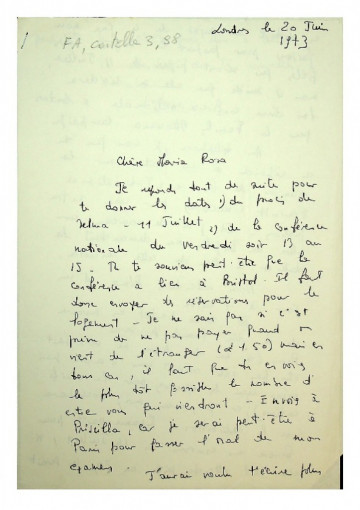 FA, cartella 3, 38
Londres le 20 Juin
1973
Chère Maria Rosa
Je réponds tout de suite pour
te donner les dates 1) du procès de
Selma - 11 Juillet, 2) de la Conférence
nationale du vendredi soir 13 au
15. Tu te souviens peut-être que la
Conférence a lieu à Bristol. Il faut
donc envoyer des réservations pour le
logement - Je ne sais pas si c'est
de ne pas payer quand on
vient de l'étranger (£ 1.50) mais en
tous cas, il faut que tu envoies
le plus tôt possible le nombre d'
entre vous qui viendront - Envoie à
Priscilla, car je serai peut-être à
Paris pour passer l'oral de mon
examen.
J'aurai voulu t'écrire plus